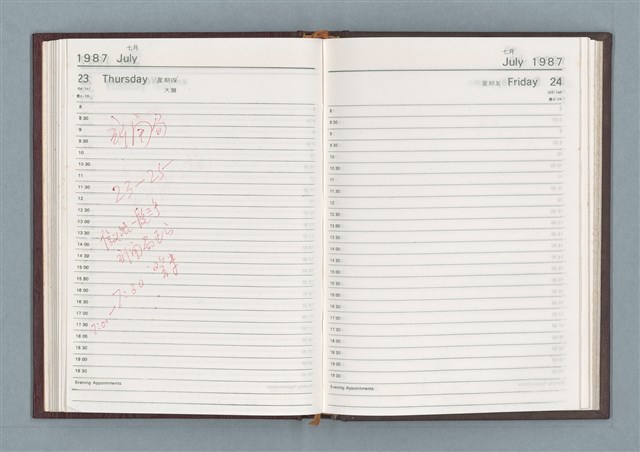 七月
1987 July
23 Thursday 星期四
大暑
8
8:30
9
9:30
10
10:30
11
11:30
12
12:30
13:00
13:30
14:00
14:30
15:00
15:30
16:00
16:30
17:00
17:30
18:00
18:30
19:00
19:30
Evening Appointments
新聞局
23-25
7:00-7:30
七月
July 1987
星期五 Friday 24
8
8:30
9
9:30
10
10:30
11
11:30
12
12:30
13:00
13:30
14:00
14:30
15:00
15:30
16:00
16:30
17:00
17:30
18:00
18:30
19:00
19:30
Evening Appointments